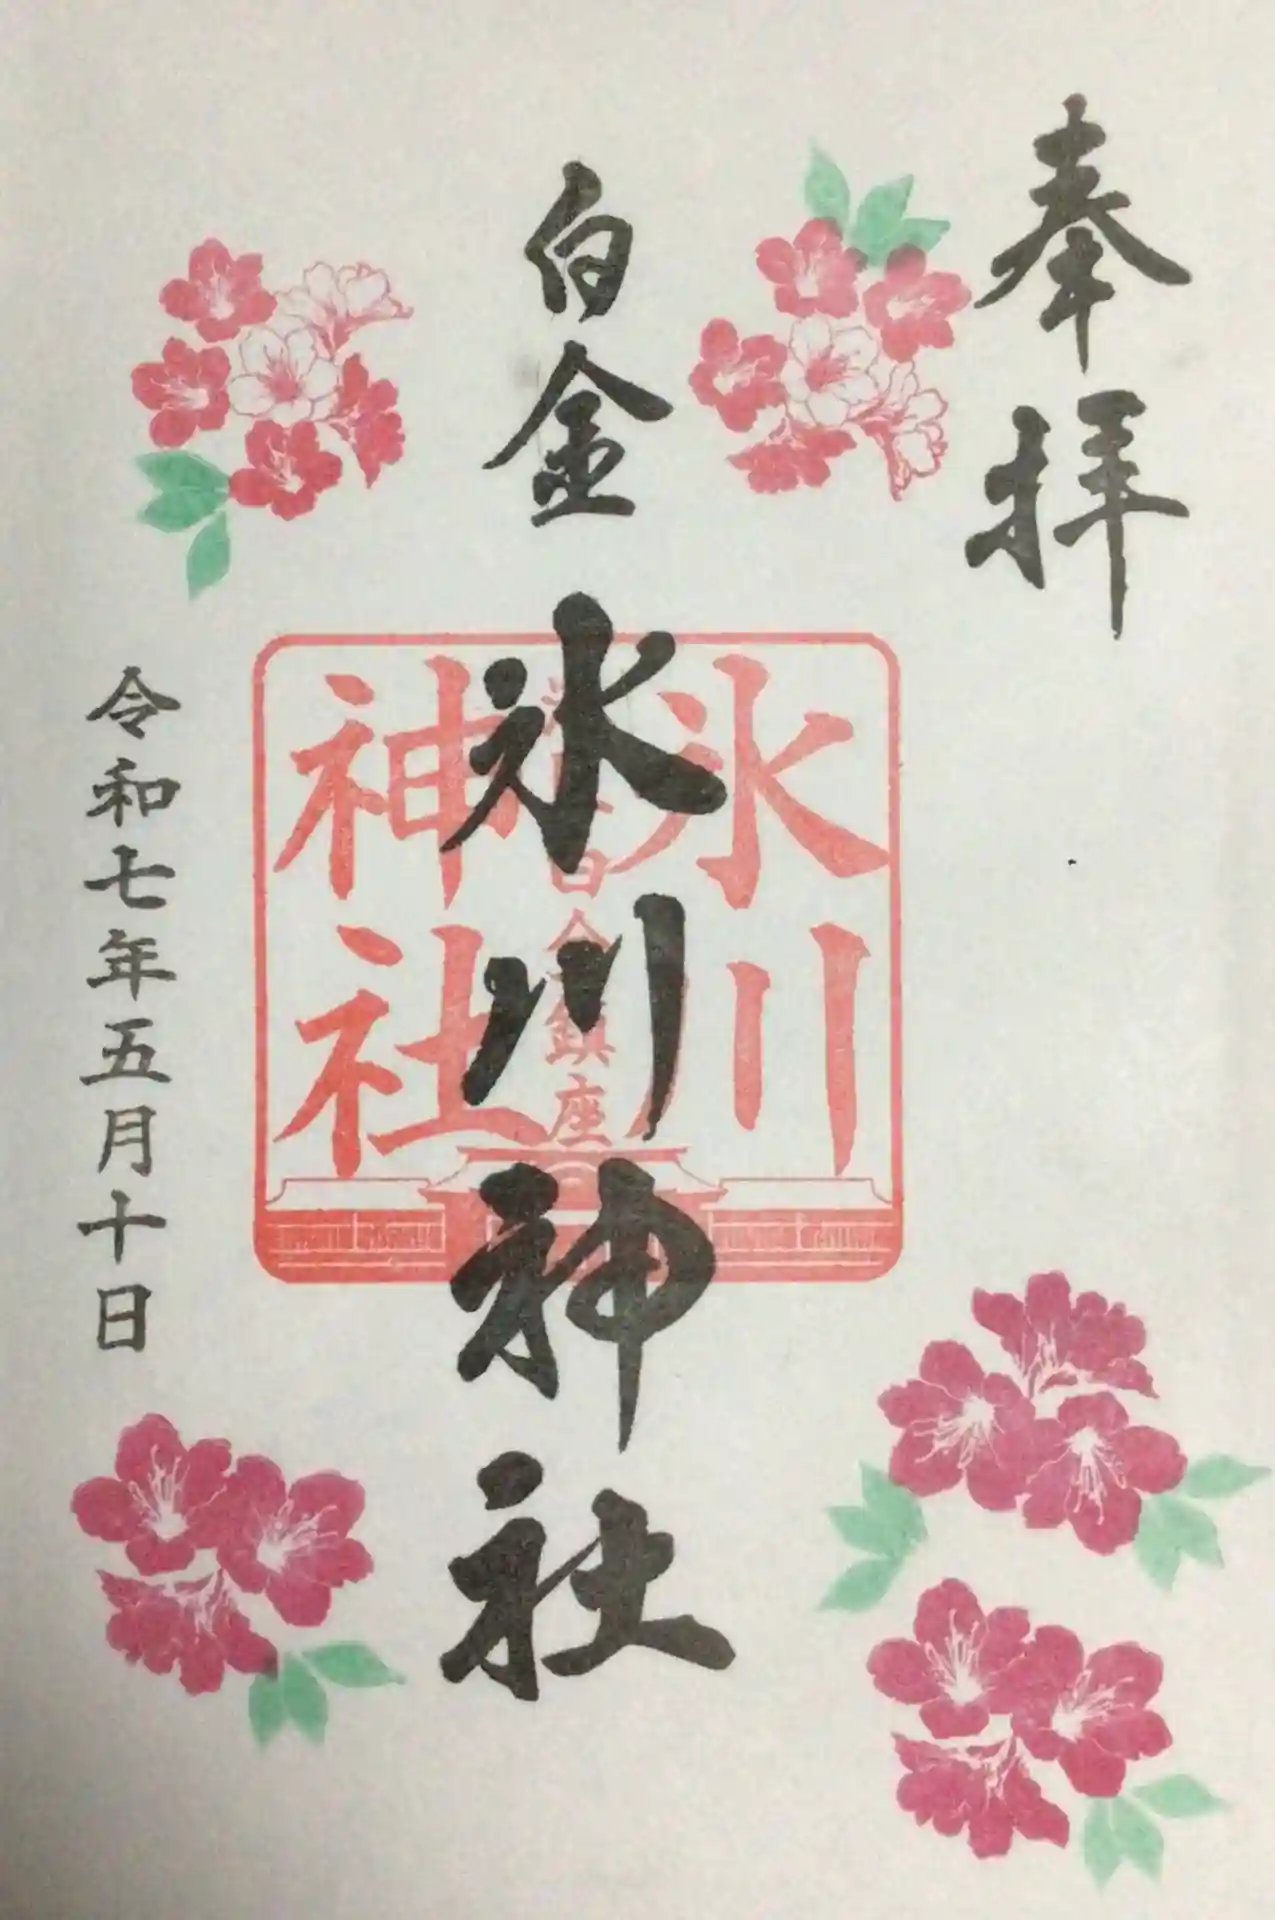 奉拝
白金
氷川神社
氷川
神社
白金鎮座
令和七年五月十日